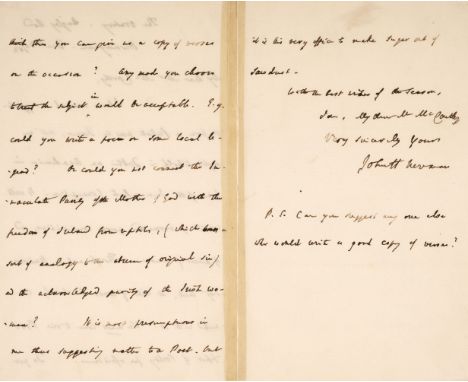 think then you can give us a copy of verses
on the occasion? Any mode you choose
to treat the subject in would be acceptable. E.g.
could you write a poem on some local le-
gend? Or could you not connect the Im-
-maculate Purity of the Mother of God with the
freedom of Ireland from reptiles, (which has a
sort of analogy to the absence of original sin)
and the acknowledged purity of the Irish wo-
-men? It is most presumptuous in
me thus suggesting matter to a Poet, but
it is his very office to make sugar out of
saw dust.
With the best wishes of the Season,
I am, My dear Mr McCarthy
Very sincerely Yours
John H Newman
P.S. Can you suggest any one else
who would write a good copy of verses?